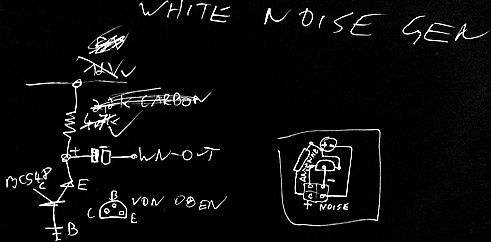 WHITE NOISE GEN
CARBON
+
WN-OUT
BC548
C
E
B
B
C E
VON OBEN
+ -
+ NOISE